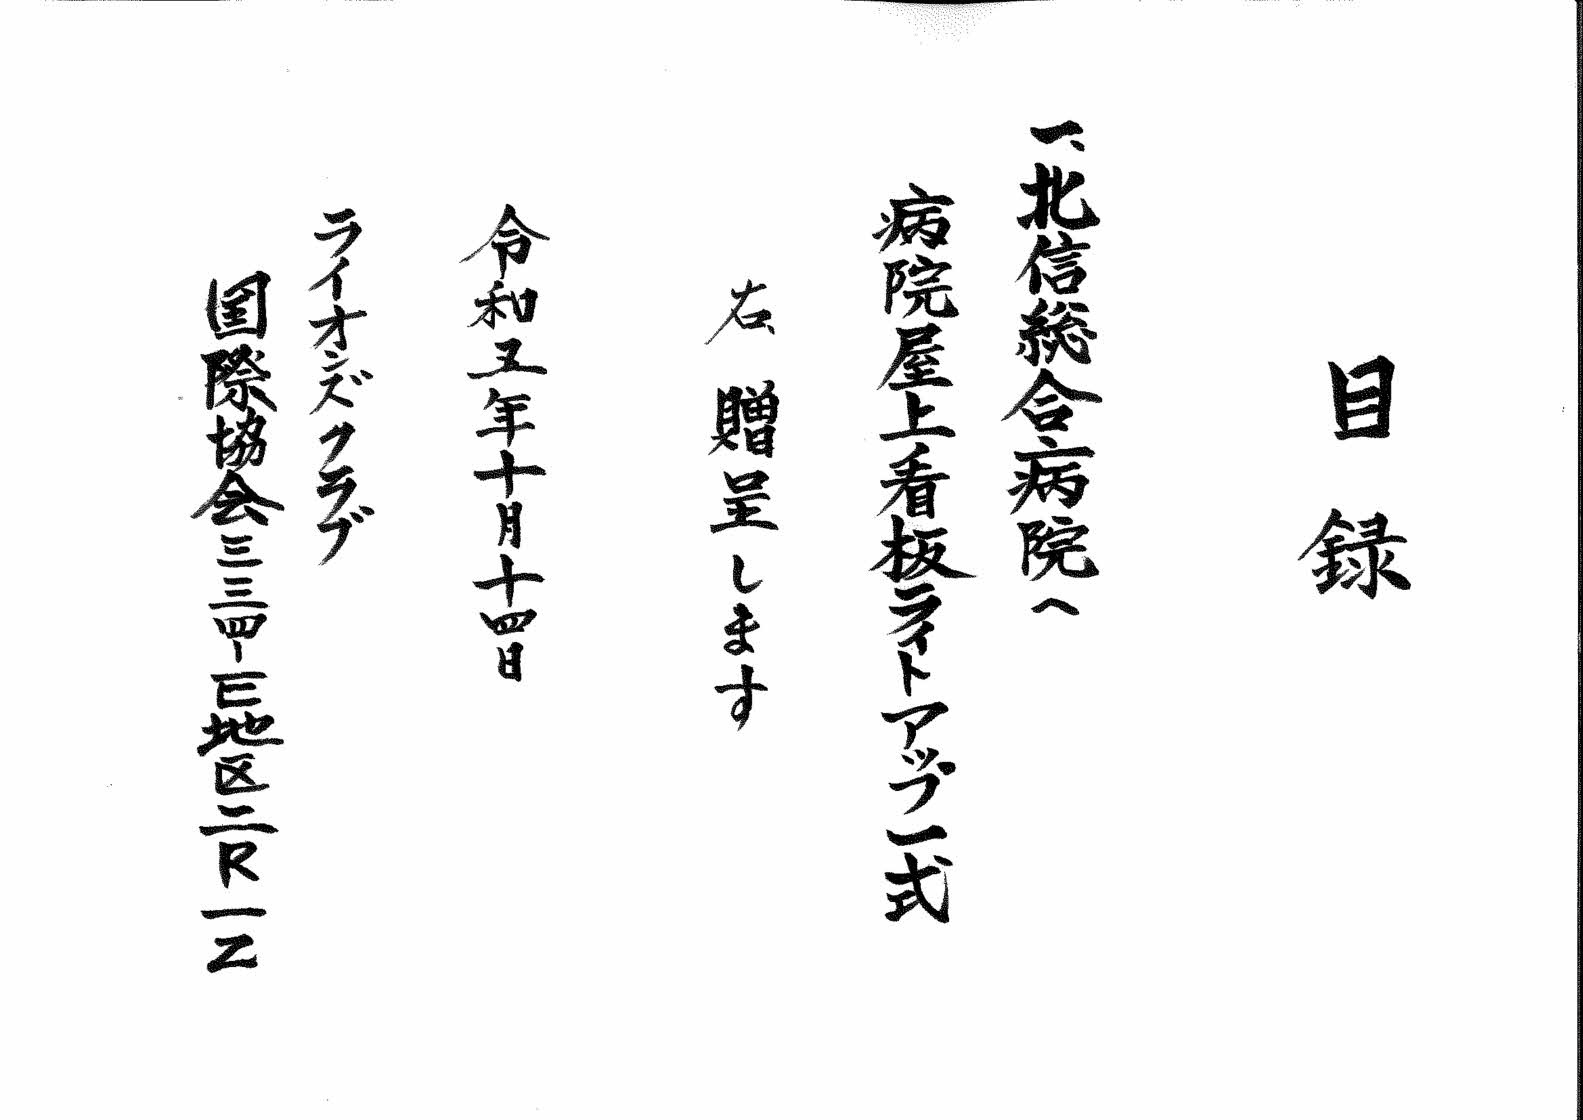 目録
一、北信総合病院へ
病院屋上看板ライトアップ一式
右、贈呈します
令和五年十月十四日
ライオンズクラブ
国際協会三三四-E地区二R一Z